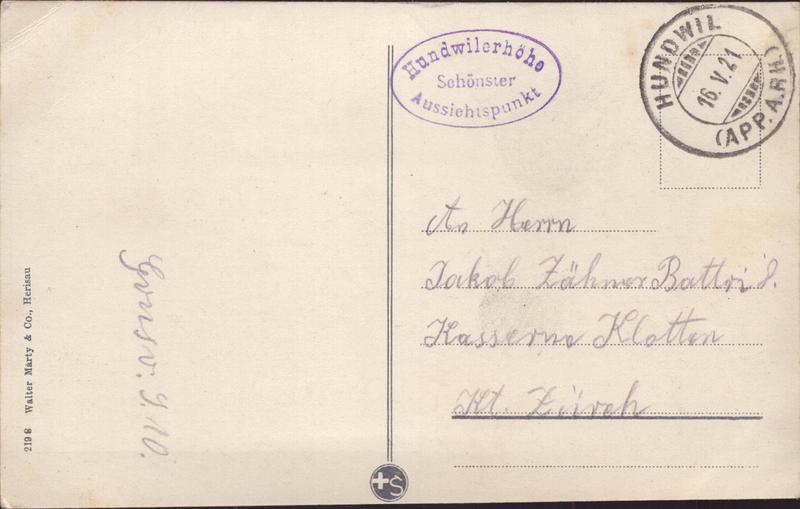 Hundwilerhöhe
Schönster
Aussichtspunkt
HUNDWIL
16.V.21
(APP. A.RH)
An Herrn
Jakob Zähner Battri 8.
Kasserne Klotten
Kt. Zürch
2198 Walter Marty & Co., Herisau
S